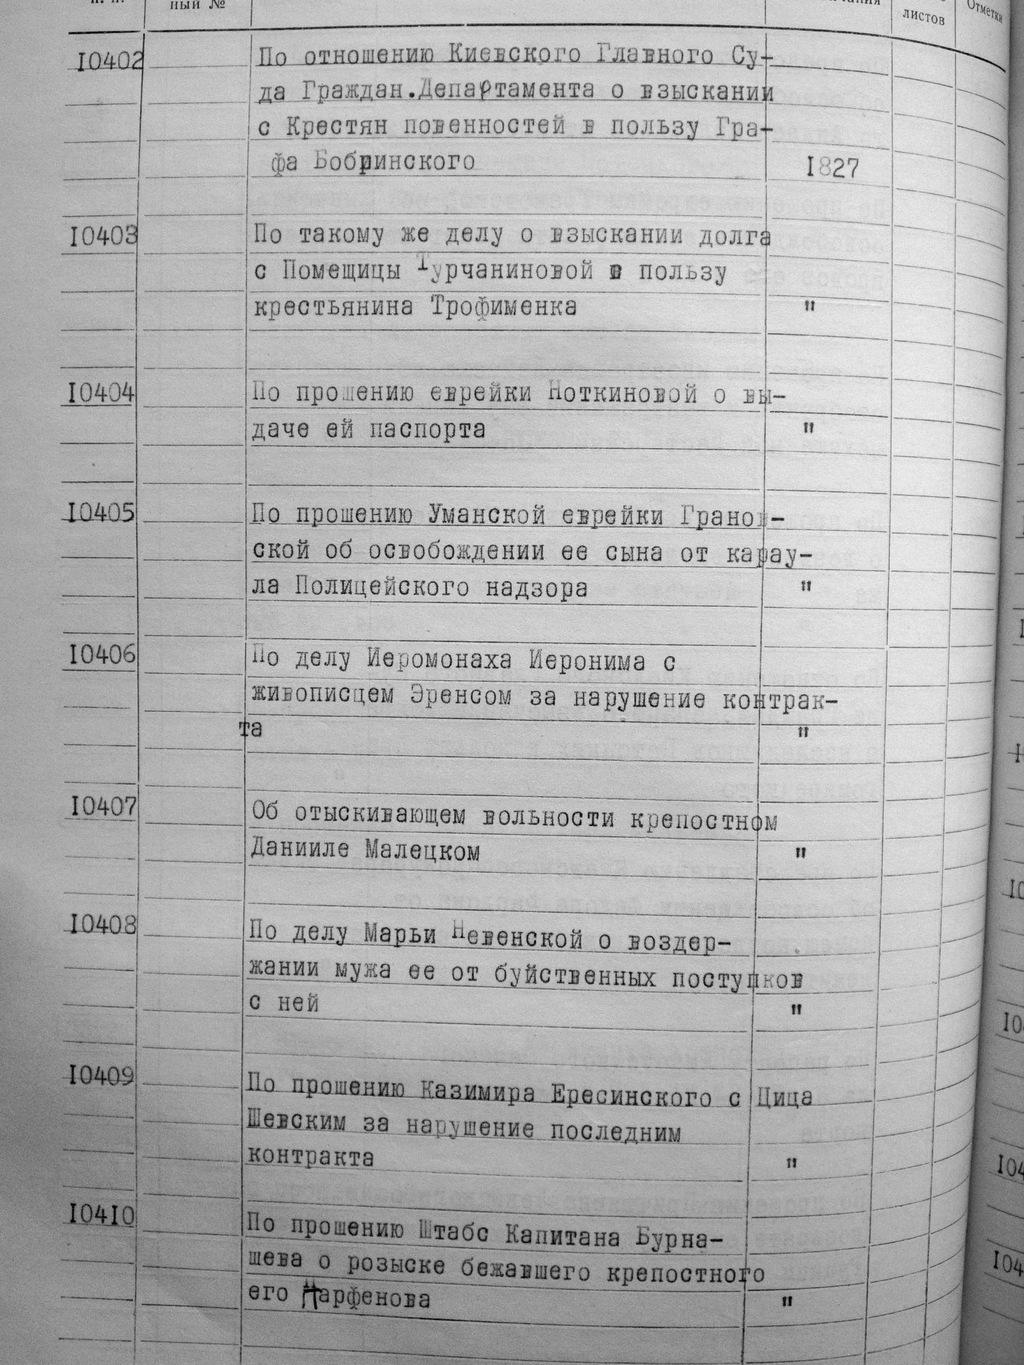 ный №
листов
Отметки
10402
По отношению Киевского Главного Су-
да Граждан.Департамента о взыскании
с Крестян повенностей в пользу Гра-
фа Бобринского 1827
10403
По такому же делу о взыскании долга
с Помещицы Турчаниновой в пользу
крестьянина Трофименка "
10404
По прошению еврейки Ноткиновой о вы-
даче ей паспорта "
10405
По прошению Уманской еврейки Гранов-
ской об освобождении ее сына от карау-
ла Полицейского надзора "
10406
По делу Иеромонаха Иеронима с
живописцем Эренсом за нарушение контрак-
та "
10407
Об отыскивающем вольности крепостном
Данииле Малецком "
10408
По делу Марьи Невенской о воздер-
жании мужа ее от буйственных поступков
с ней "
10409
По прошению Казимира Ересинского с Цица
Шевским за нарушение последним
контракта "
10410
По прошению Штабс Капитана Бурна-
шева о розыске бежавшего крепостного
его Парфенова "